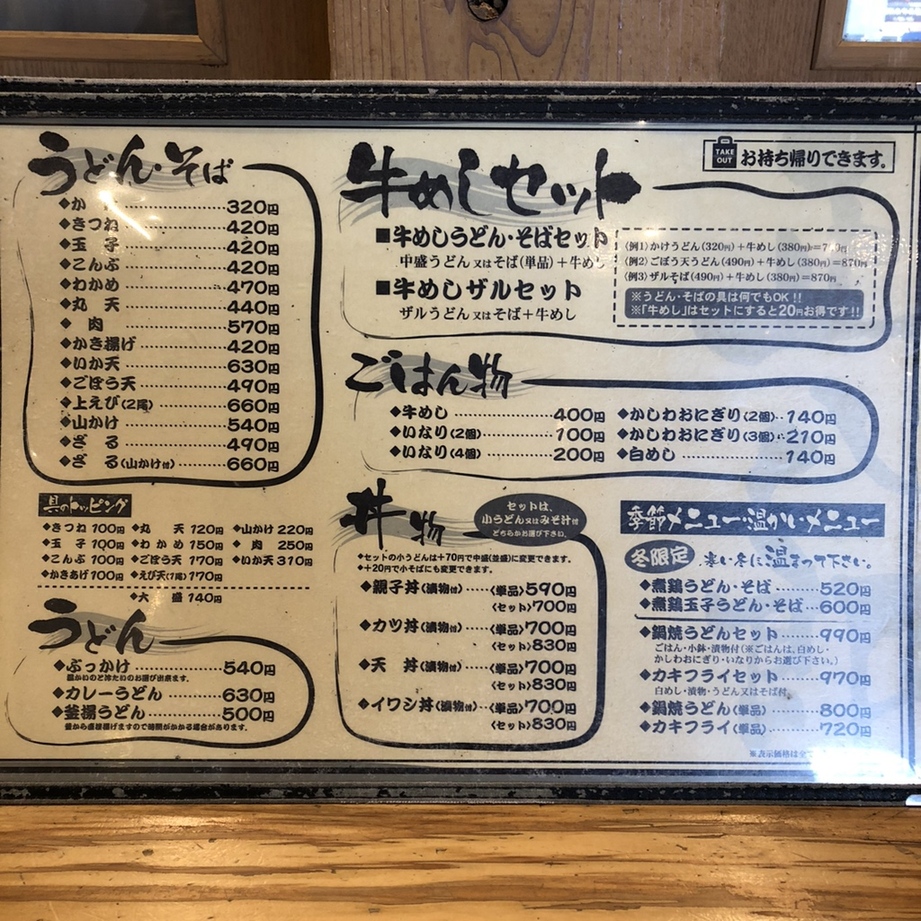 うどん・そば
◆か け 320円
◆きつね 420円
◆玉 子 420円
◆こんぶ 420円
◆わかめ 470円
◆丸 天 440円
◆ 肉 570円
◆かき揚げ 420円
◆いか天 630円
◆ごぼう天 490円
◆上えび(2尾) 660円
◆山かけ 540円
◆ざ る 490円
◆ざ る(山かけ付) 660円
具のトッピング
◆きつね 100円 ◆丸 天 120円 ◆山かけ 220円
◆玉 子 100円 ◆わかめ 150円 ◆肉 250円
◆こんぶ 100円 ◆ごぼう天 170円 ◆いか天 310円
◆かきあげ 100円 ◆えび天(1尾) 170円
◆大 盛 140円
うどん
◆ぶっかけ 540円
温かいのと冷たいのお選び出来ます。
◆カレーうどん 630円
◆釜揚うどん 500円
釜から直接揚げますので時間がかかる場合があります。
牛めしセット
TAKE OUT お持ち帰りできます。
■牛めしうどん・そばセット
中盛うどん又はそば(単品)+牛めし
■牛めしザルセット
ザルうどん又はそば+牛めし
(例1)かけうどん(320円)+牛めし(380円)=7 0円
(例2)ごぼう天うどん(490円)+牛めし(380円)=870円
(例3)ザルそば(490円)+牛めし(380円)=870円
※うどん・そばの具は何でもOK!!
※「牛めし」はセットにすると20円お得です!!
ごはん物
◆牛めし 400円 ◆かしわおにぎり(2個) 140円
◆いなり(2個) 100円 ◆かしわおにぎり(3個) 210円
◆いなり(4個) 200円 ◆白めし 140円
丼物
セットは、
小うどん又はみそ汁付
どちらかお選び下さい。
◆セットの小うどんは+70円で中盛(並盛)に変更できます。
◆+20円で小そばにも変更できます。
◆親子丼(漬物付) 〈単品〉590円
〈セット〉700円
◆カツ丼(漬物付) 〈単品〉700円
〈セット〉830円
◆天 丼(漬物付) 〈単品〉700円
〈セット〉830円
◆イワシ丼(漬物付) 〈単品〉700円
〈セット〉830円
季節メニュー・温かいメニュー
冬限定 寒い冬に温まって下さい。
◆煮鶏うどん・そば 520円
◆煮鶏玉子うどん・そば 600円
◆鍋焼うどんセット 990円
ごはん・小鉢・漬物付(※ごはんは、白めし・
かしわおにぎり・いなりからお選び下さい。)
◆カキフライセット 970円
白めし・漬物・うどん又はそば付
◆鍋焼うどん(単品) 800円
◆カキフライ(単品) 720円
※表示価格は全て